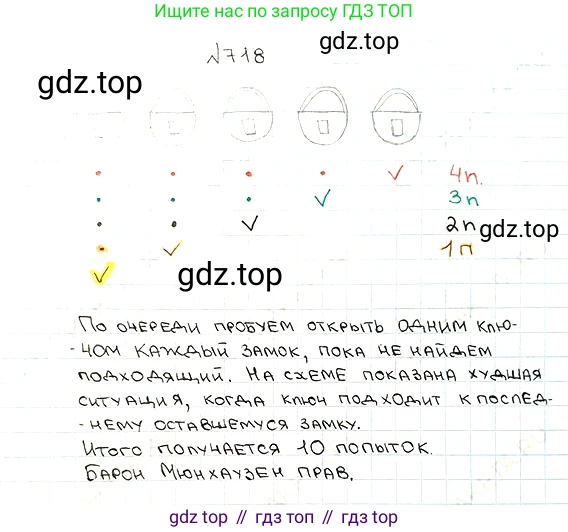 Ищите нас по запросу ГДЗ ТОП
gdz.top
№718
gdz.top
4п.
3п
2п
gdz.top
1п
gdz.top
По очереди пробуем открыть одним клю-
-чом каждый замок, пока не найдем
подходящий. На схеме показана худшая
ситуация, когда ключ подходит к послед-
-нему оставшемуся замку.
Итого получается 10 попыток.
Барон Мюнхаузен прав.
gdz.top // гдз.топ // гдз.top